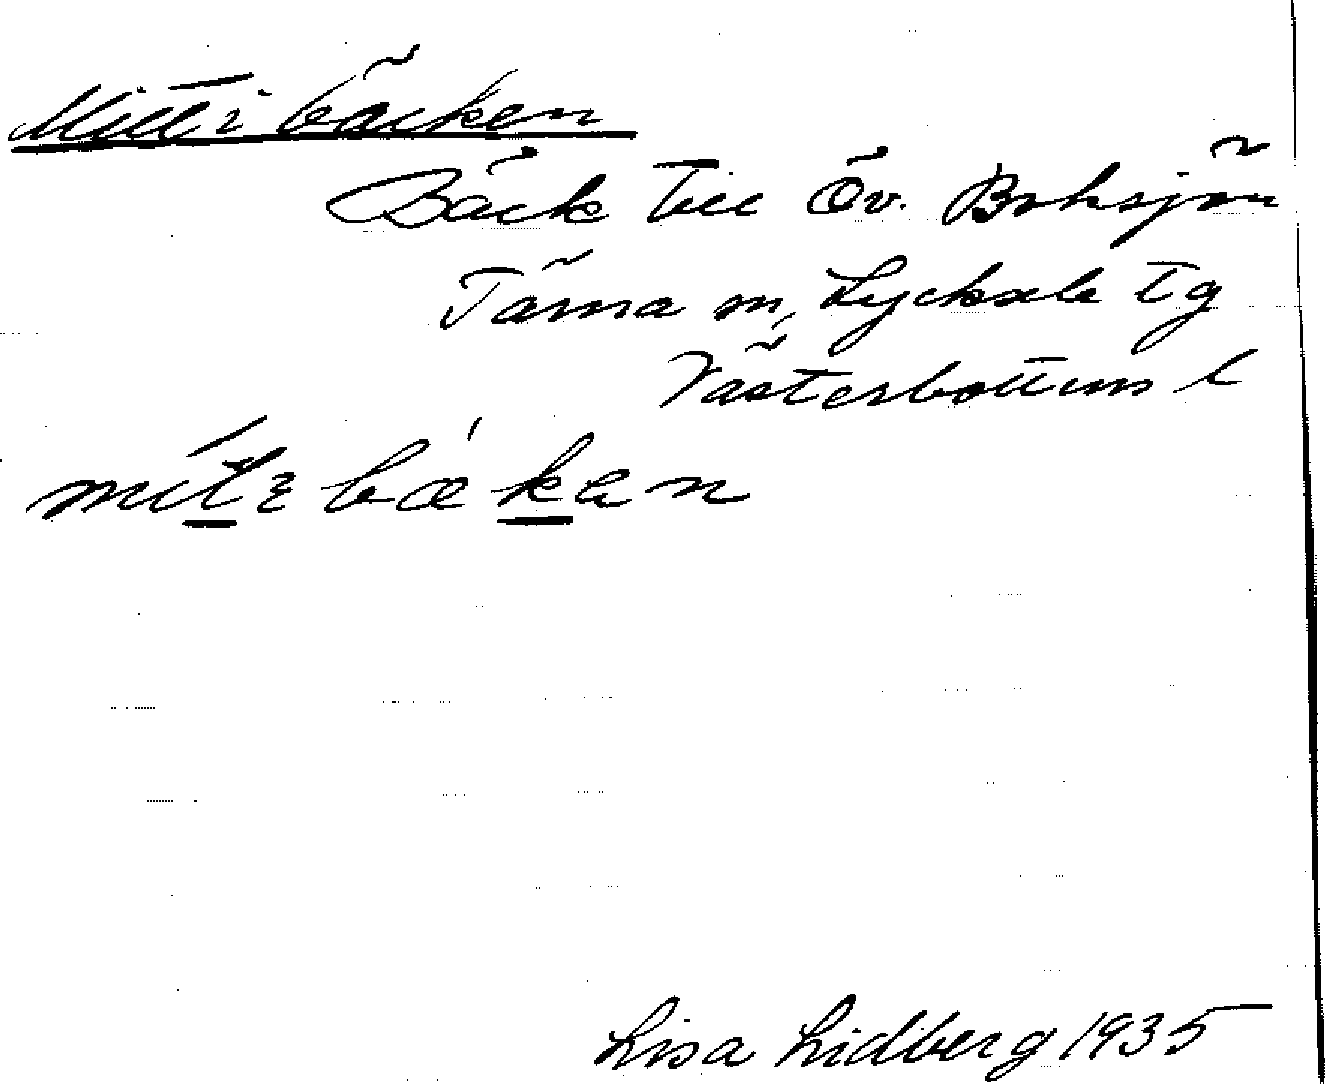 Mitt i bäcken
Bäck till Öv. Boksjön
Tärna sn, Lycksele tg
Västerbottens l
Lisa Lidberg 1935